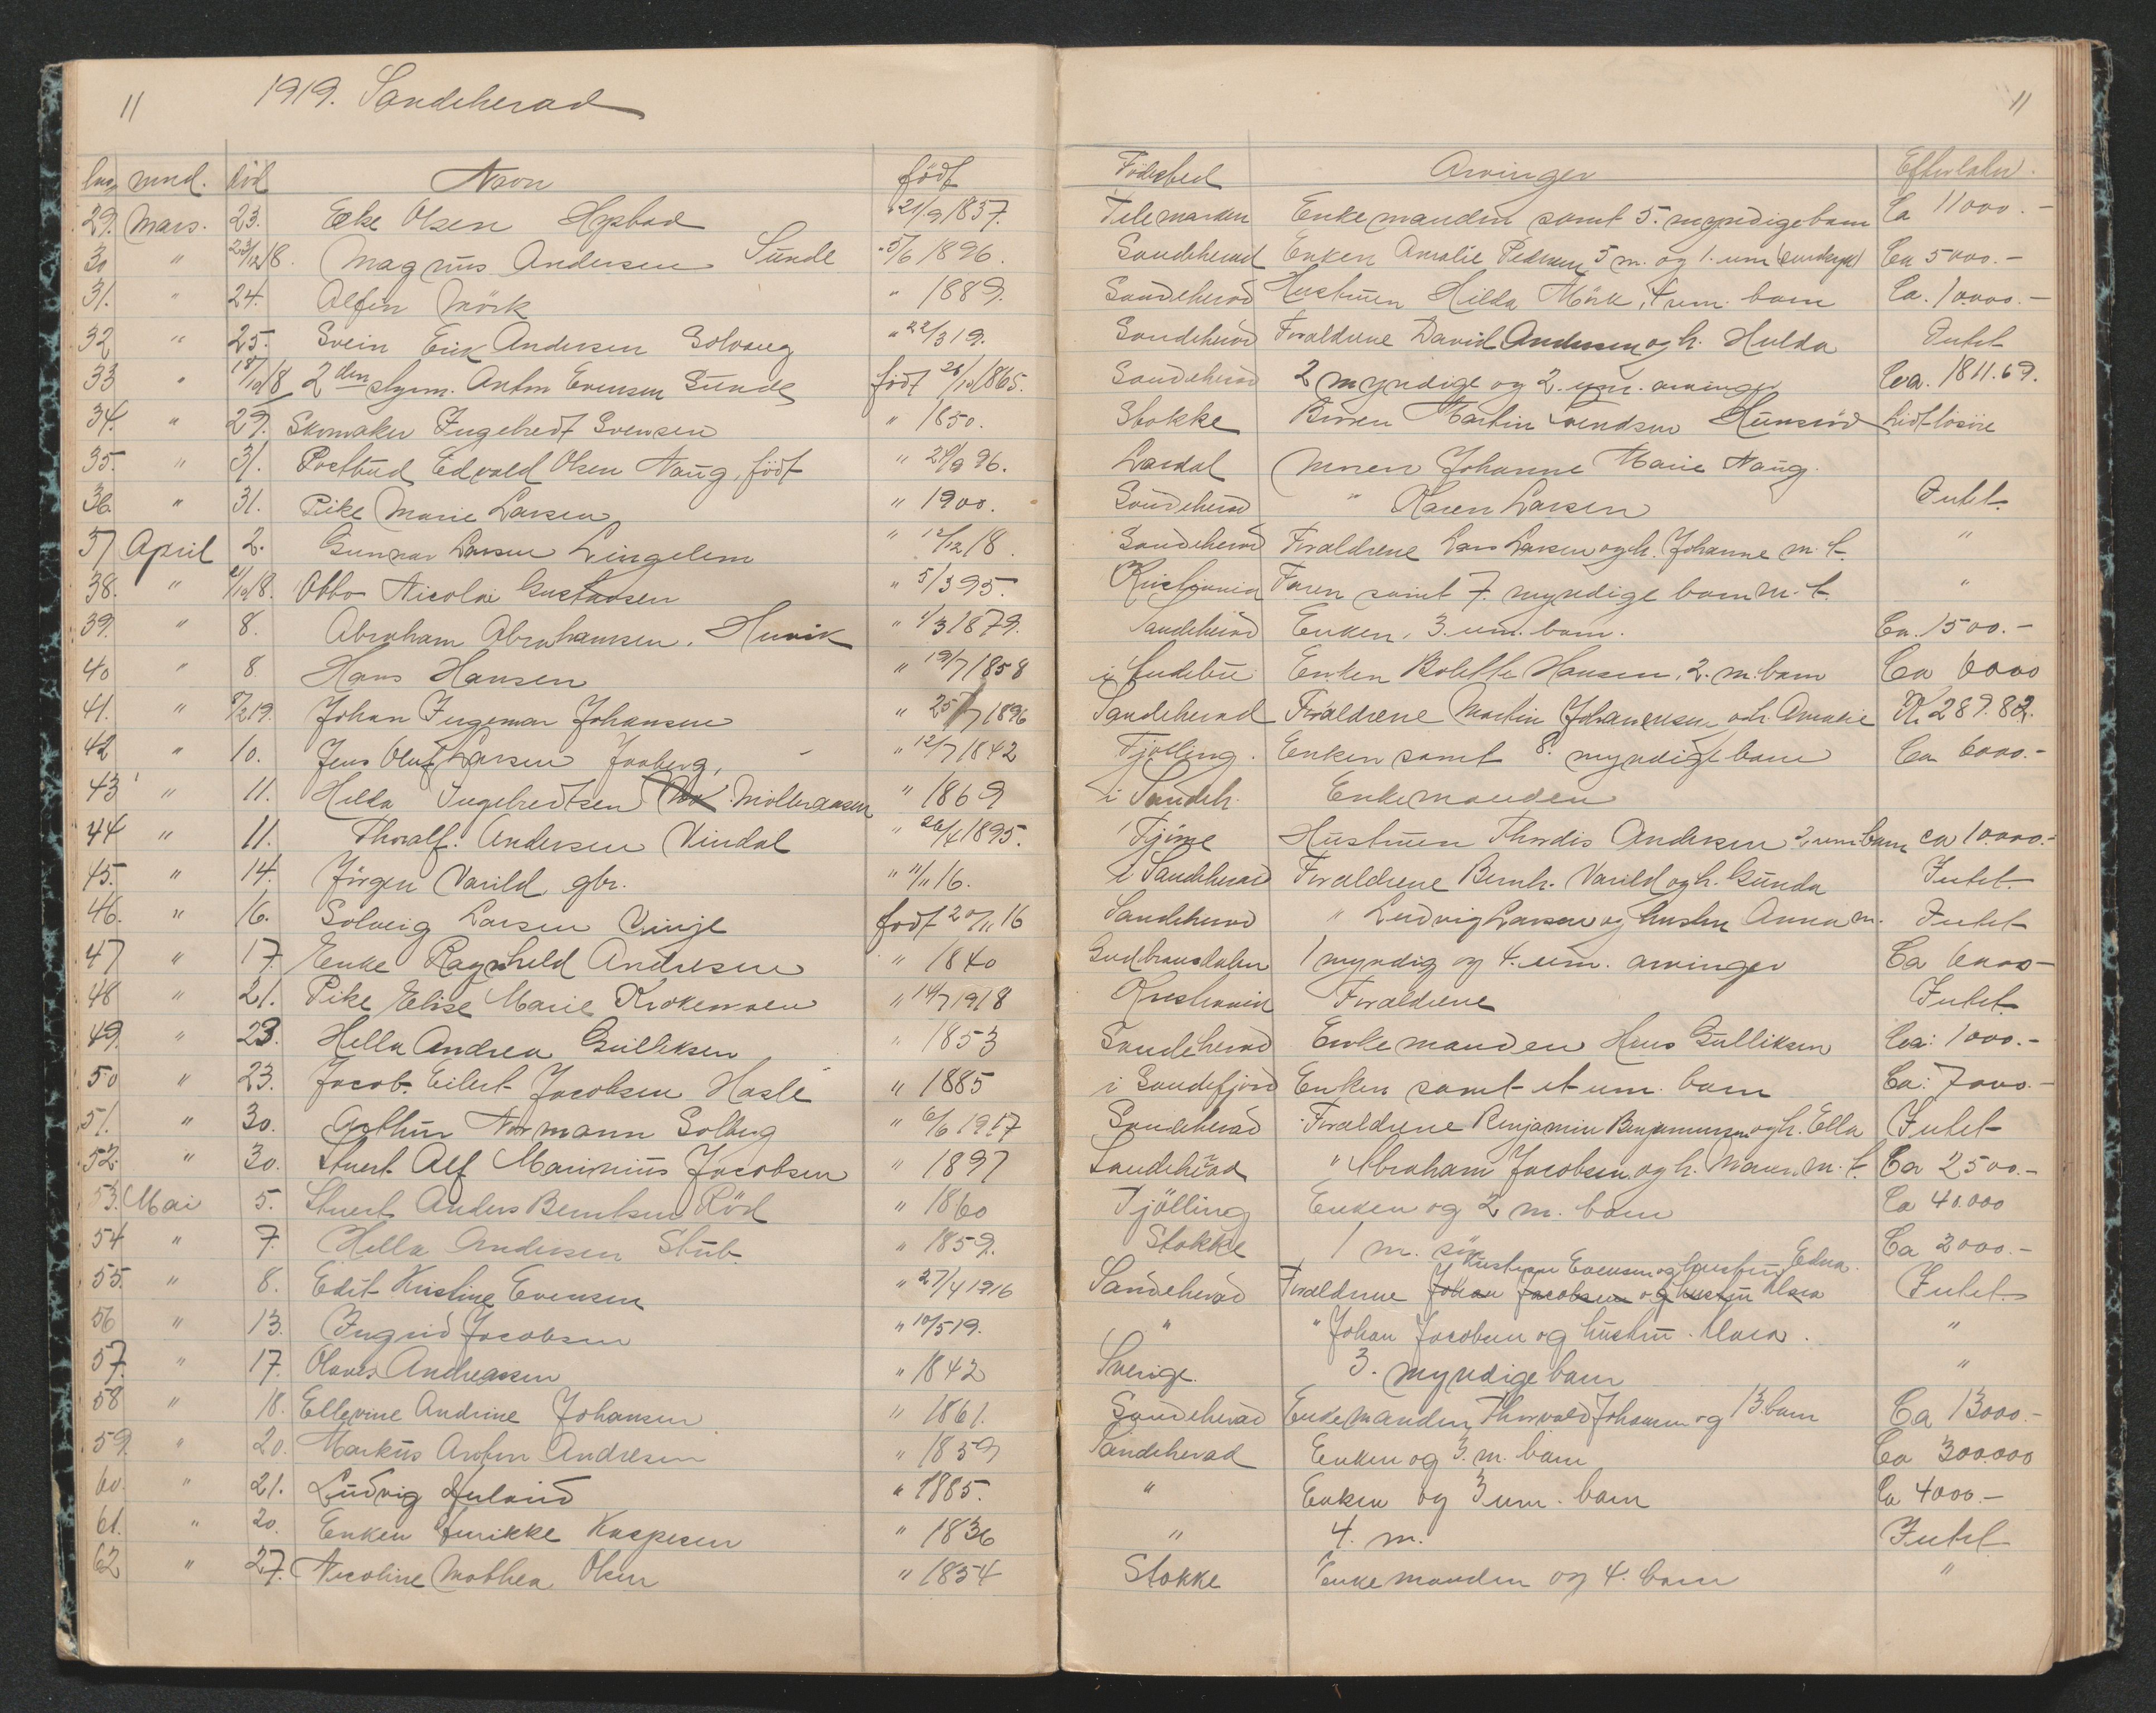 11 1919. Sandeherad 11
mnd. död Navn födt Födested Arvinger Efterladn.
29. Mars. 23. Olsen " 21/9 1837. Telemarken Enkemanden samt 5. myndige barn Ca 11000.-
30 " 23/12 18. Magnus Andersen Sunde " 5/6 1896. Sandeherad Enken Amalie Pedersen 5 m. og 1. um Ca 5000.-
31. " 24. Alfin Mörk " 1889. Sandeherad Hustruen Hilda Mörk, 4 um. barn Ca. 10000.-
32 " 25. Svein Erik Andersen Solvang " 22/3 19. Sandeherad Foraldrene David Andersen og h. Hulda Intet
33 " 18/10 18 2den styrm. Anton Evensen Sunde födt 26/10 1865. Sandeherad 2 myndige og 2. um. arvinger Ca. 1811.69.
34. " 29. Skomaker Ingebredt Svensen " 1850. Stokke Broren Martin
35. " 31. Postbud Edvald Olsen Haug, födt " 29/9 96. Lardal Moren Johanne Marie Haug.
36. " 31. Pike Marie Larsen " 1900. Sandeherad " Karen Larsen Intet.
37 April 2. Gunnar Larsen Lingelem " 12/12 18. Sandeherad Foraldrene Lars Larsen og h. Johanne m. f. "
38. " Otto Nicolai Gustavsen " 5/3 95. Kristiania Faren samt 7. myndige barn m. f. "
39. " 8. Abraham Abrahamsen. Huvik " 1/3 1879. Sandeherad Enken, 3. um. barn. Ca. 1500.-
40 " 8. Hans Hansen " 19/7 1858 i Andebu Enken Bolette Hansen, 2. m. barn Ca 6000
41. " 8/2 19. Johan Ingemar Johansen " 25/7 1896 Sandeherad Foraldrene Martin Johannesen og h. Amalie Kr. 289.82.
42 " 10. Jens Oluf Larsen Joaberg, " 12/7 1842 Tjölling. Enken samt 8. myndige barn Ca 6000.-
43 " 11. Hilda Ingebredtsen Mölleraasen " 1869 i Sandeh. Enkemanden
44 " 11. Thoralf. Andersen Vindal " 1895. Tjöme Hustruen Thordis Andersen 2 um. barn ca 10.000.-
45. " 14. Jörgen Varild gbr. " 11/11 16. i Sandeherad Foraldrene Bernh. Varild og h. Gunda Intet.
46. " 16. Solveig Larsen Vinje födt 20/11 16 Sandeherad " Ludvig Larsen og hustru Anna m. Intet
47 " 17. Enke Ragnhild Andresen " 1840 Gudbrandsdalen 1 myndig og 4. um. arvinger Ca 6000-
48 " 21. Pike Elise Marie Krokemoen " 14/7 1918 Kristiania Foraldrene Intet.
49. " 23. Hella Andrea Gulliksen " 1853 Sandeherad Enkemanden Hans Gulliksen Ca: 1000.-
50 " 23. Jacob Eilert Jacobsen Hasle " 1885 i Sandefjord Enken samt et um. barn Ca: 7000.-
51. " 30. Arthur Normann Solberg " 6/6 1917 Sandeherad Foraldrene Benjamin Benjaminsen og h. Ella Intet
52. " 30. Stuert Alf Marinius Jacobsen " 1897 Sandeherad " Abraham Jacobsen og h. Maren m. f. Ca 2500.-
53. Mai 5. Stuert Anders Berntsen Röd " 1860 Tjölling Enken og 2 m. barn Ca 40.000
54 " 7. Hella Andersen Stub. " 1859. Stokke 1 m. Ca 2000.-
Kristian Evensen og hustru Edna.
55. " 8. Edit Kristine Evensen " 27/4 1916 Sandeherad Foraldrene Johan Jacobsen og hustru Klara Intet.
56 " 13. Ingrid Jacobsen " 10/5 19. " " Johan Jacobsen og hustru. Klara. "
57. " 17. Olaves Andreassen " 1842 Sverige. 3. myndige barn "
58 " 18. Ellevine Andrine Johansen " 1861. Sandeherad Enkemanden Thorvald Johansen og 13. barn Ca 13000.-
59. " 20. Markus Anton Andresen " 1859 Sandeherad Enken og 3. m. barn Ca 300.000
60. " 21. Ludvig " 1885. " Enken og 3 um. barn Ca 4000.-
61. " 20. Enken Kaspersen " 1836 " 4. m. Intet
62 " 27. Nicoline Mathea Olsen " 1854 Stokke Enkemanden og 4. barn "